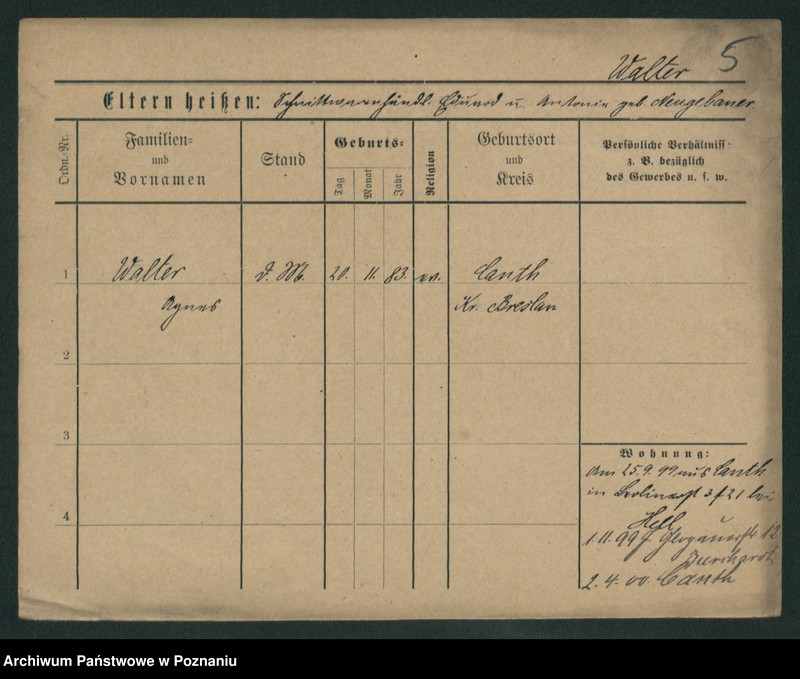 Walter 5
Eltern heißen: Schnittwarenhändl. Eduard u. Antonie geb. Neugebauer
Ordn. Nr.
Familien-
und
Vornamen
Stand
Geburts-
Tag
Monat
Jahr
Religion
Geburtsort
und
Kreis
Persönliche Verhältniss:
z. B. bezüglich
des Gewerbes u. s. w.
1 Walter d. M. 20. 11. 83. ev. Canth
Agnes Kr. Breslau
2
3
4
Wohnung:
Am 25.9.99 aus Canth
in Berlinerst 3 f 21 bei
Hell
1.11.99 Glogauerstr. 12
Burchardt
2.4.00 Canth
Archiwum Państwowe w Poznaniu